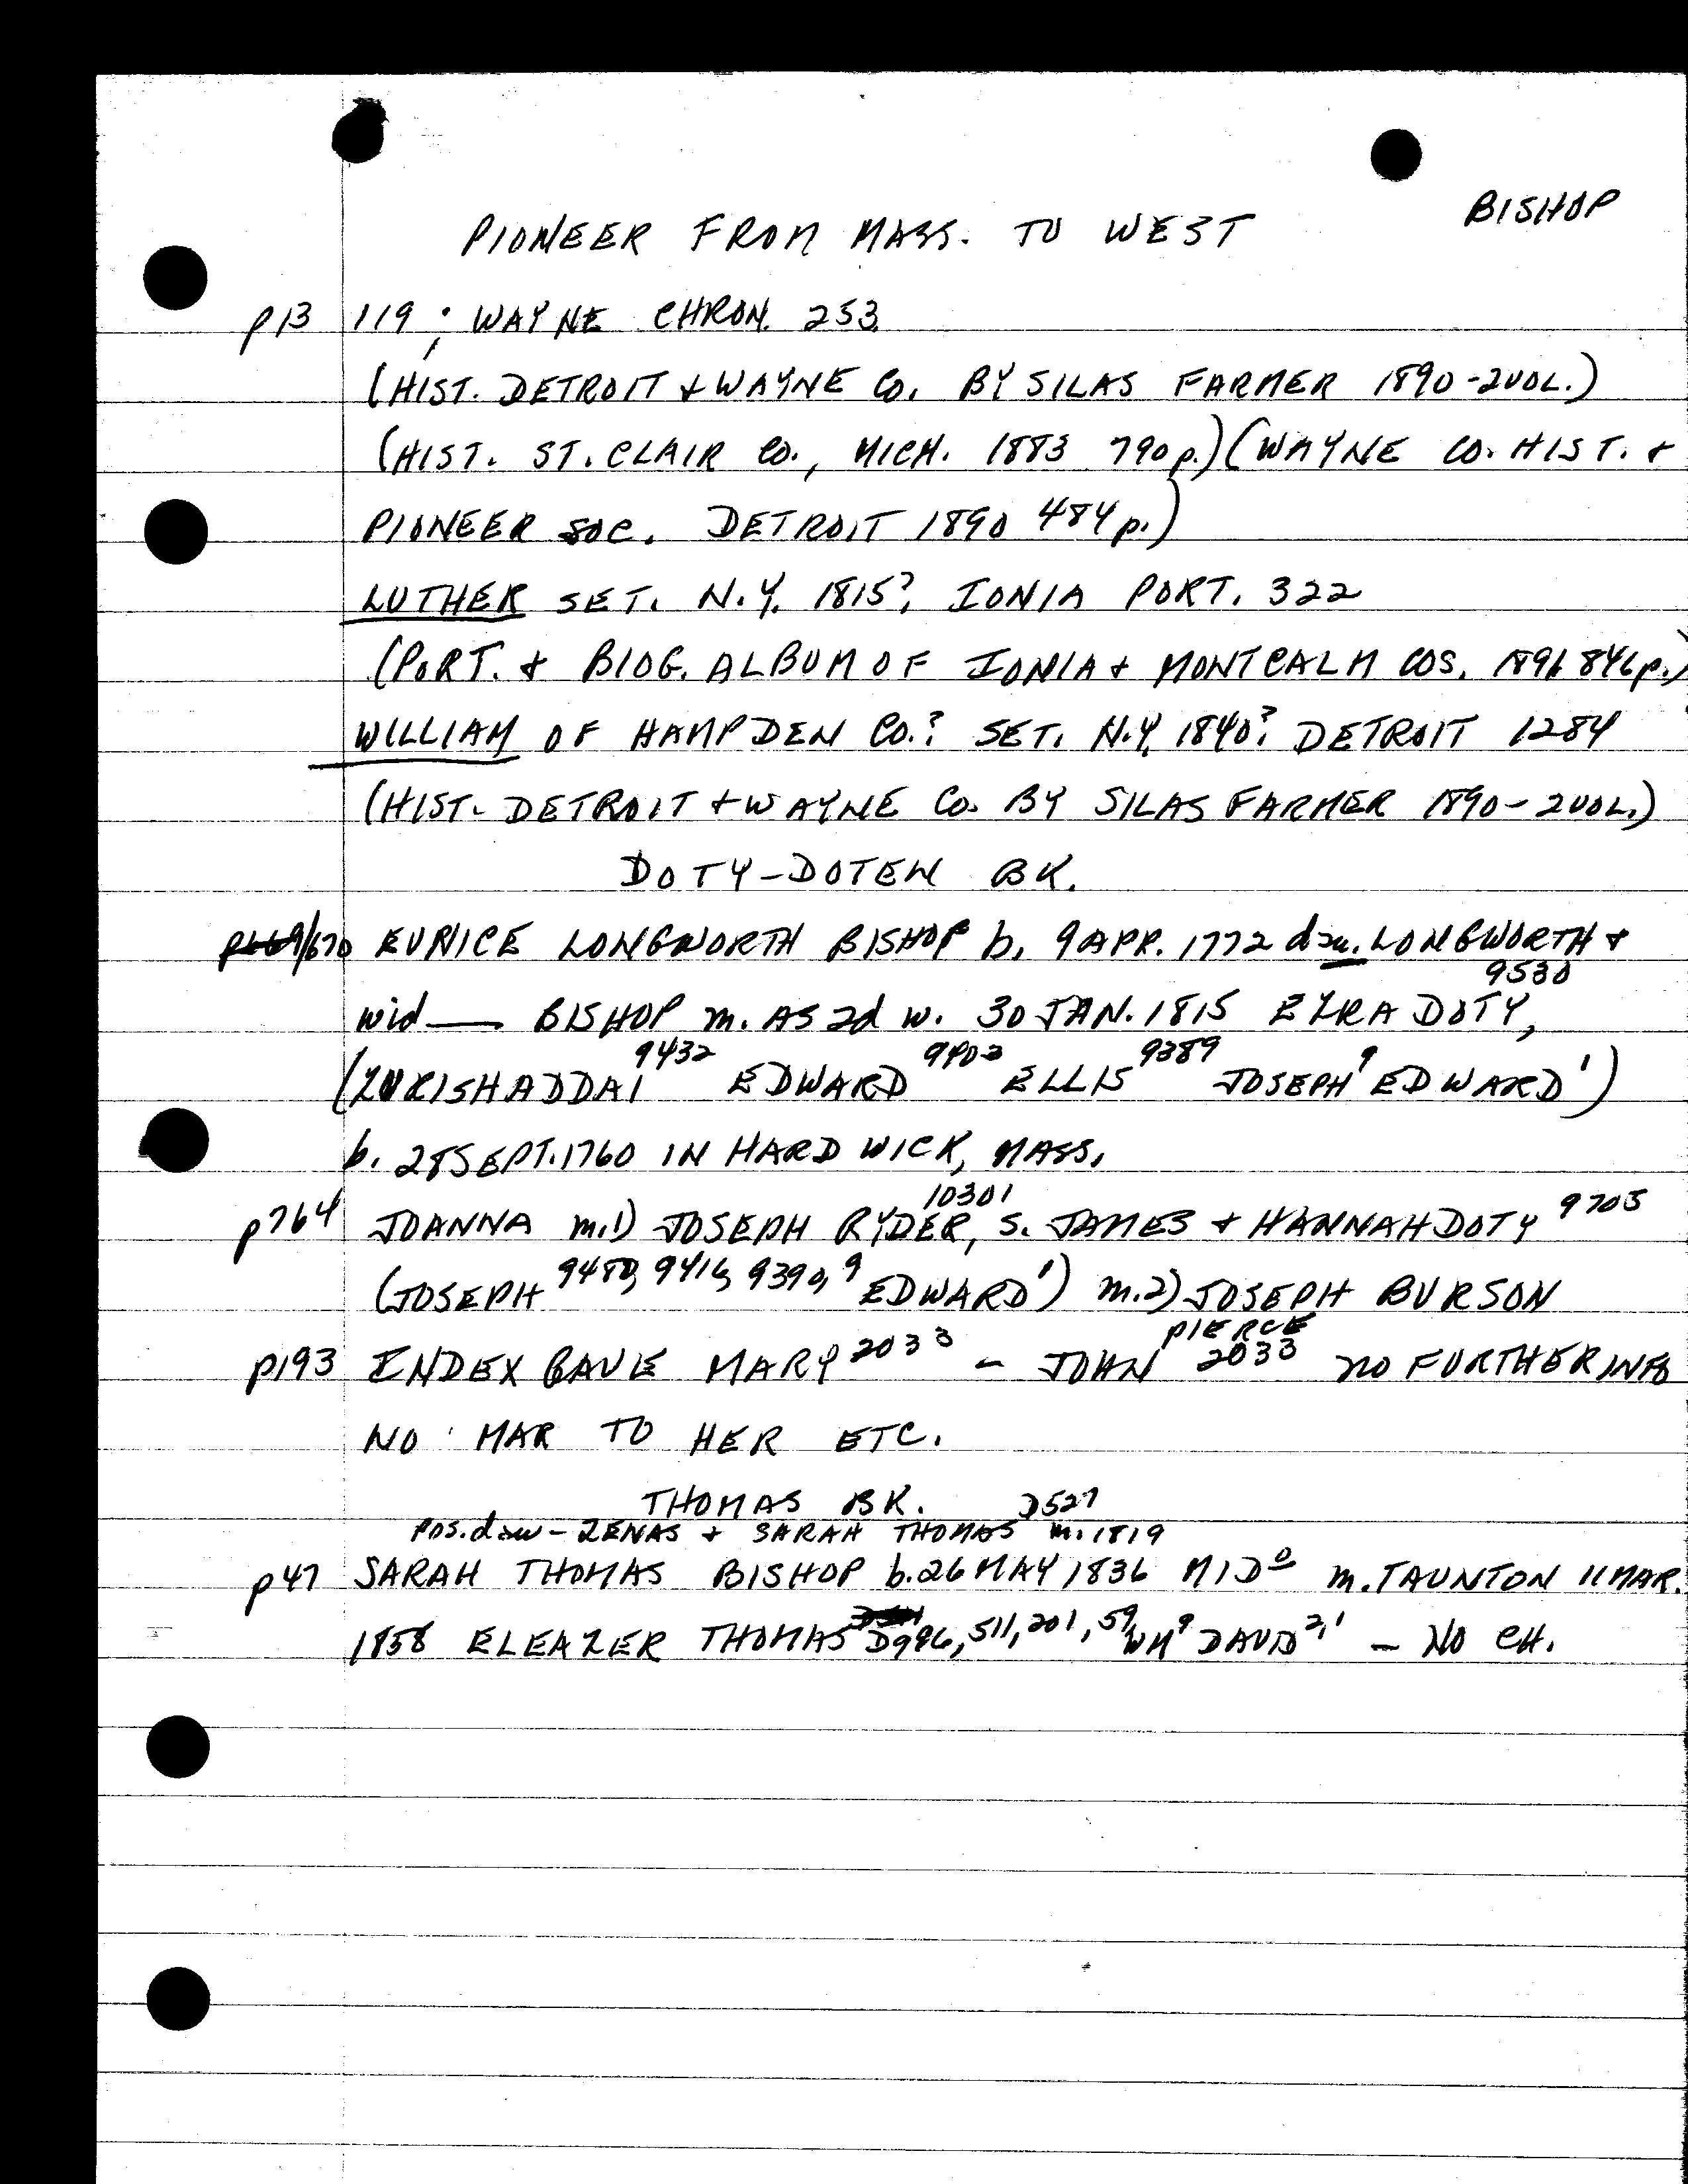 BISHOP
PIONEER FROM MASS. TO WEST
p13 119; WAYNE CHRON. 253.
(HIST. DETROIT & WAYNE CO. BY SILAS FARMER 1890-2VOL.)
(HIST. ST. CLAIR CO., MICH. 1883 790p.) (WAYNE CO. HIST. &
PIONEER SOC. DETROIT 1890 484p.)
LUTHER SET. N.Y. 1815?, IONIA PORT. 322
(PORT. & BIOG. ALBUM OF IONIA & MONTCALM COS. 1891 846p.)
WILLIAM OF HAMPDEN CO.? SET. N.Y. 1840? DETROIT 1284
(HIST. DETROIT & WAYNE CO. BY SILAS FARMER 1890-2VOL.)
DOTY-DOTEN BK.
p669/670 EUNICE LONGWORTH BISHOP b. 9 APR. 1772 dau. LONGWORTH &
wid — BISHOP m. AS 2d w. 30 JAN. 1815 EZRA DOTY, 9530
(ZURISHADDAI 9432 EDWARD 9402 ELLIS 9389 JOSEPH 9 EDWARD 1)
b. 28 SEPT. 1760 IN HARDWICK, MASS.
p764 JOANNA m.1) JOSEPH RYDER, 10301 S. JAMES & HANNAH DOTY 9705
(JOSEPH 9480, 9416, 9390, 9 EDWARD 1) m.2) JOSEPH BURSON
p193 INDEX GAVE MARY 2033 - JOHN PIERCE 2033 no FURTHER INFO
NO MAR TO HER ETC.
THOMAS BK. D527
POS. dau - ZENAS & SARAH THOMAS m. 1819
p47 SARAH THOMAS BISHOP b. 26 MAY 1836 MIDo m. TAUNTON 11 MAR.
1858 ELEAZER THOMAS D996, 511, 201, 59, WM 9 DAVID 2,1 - NO CH.